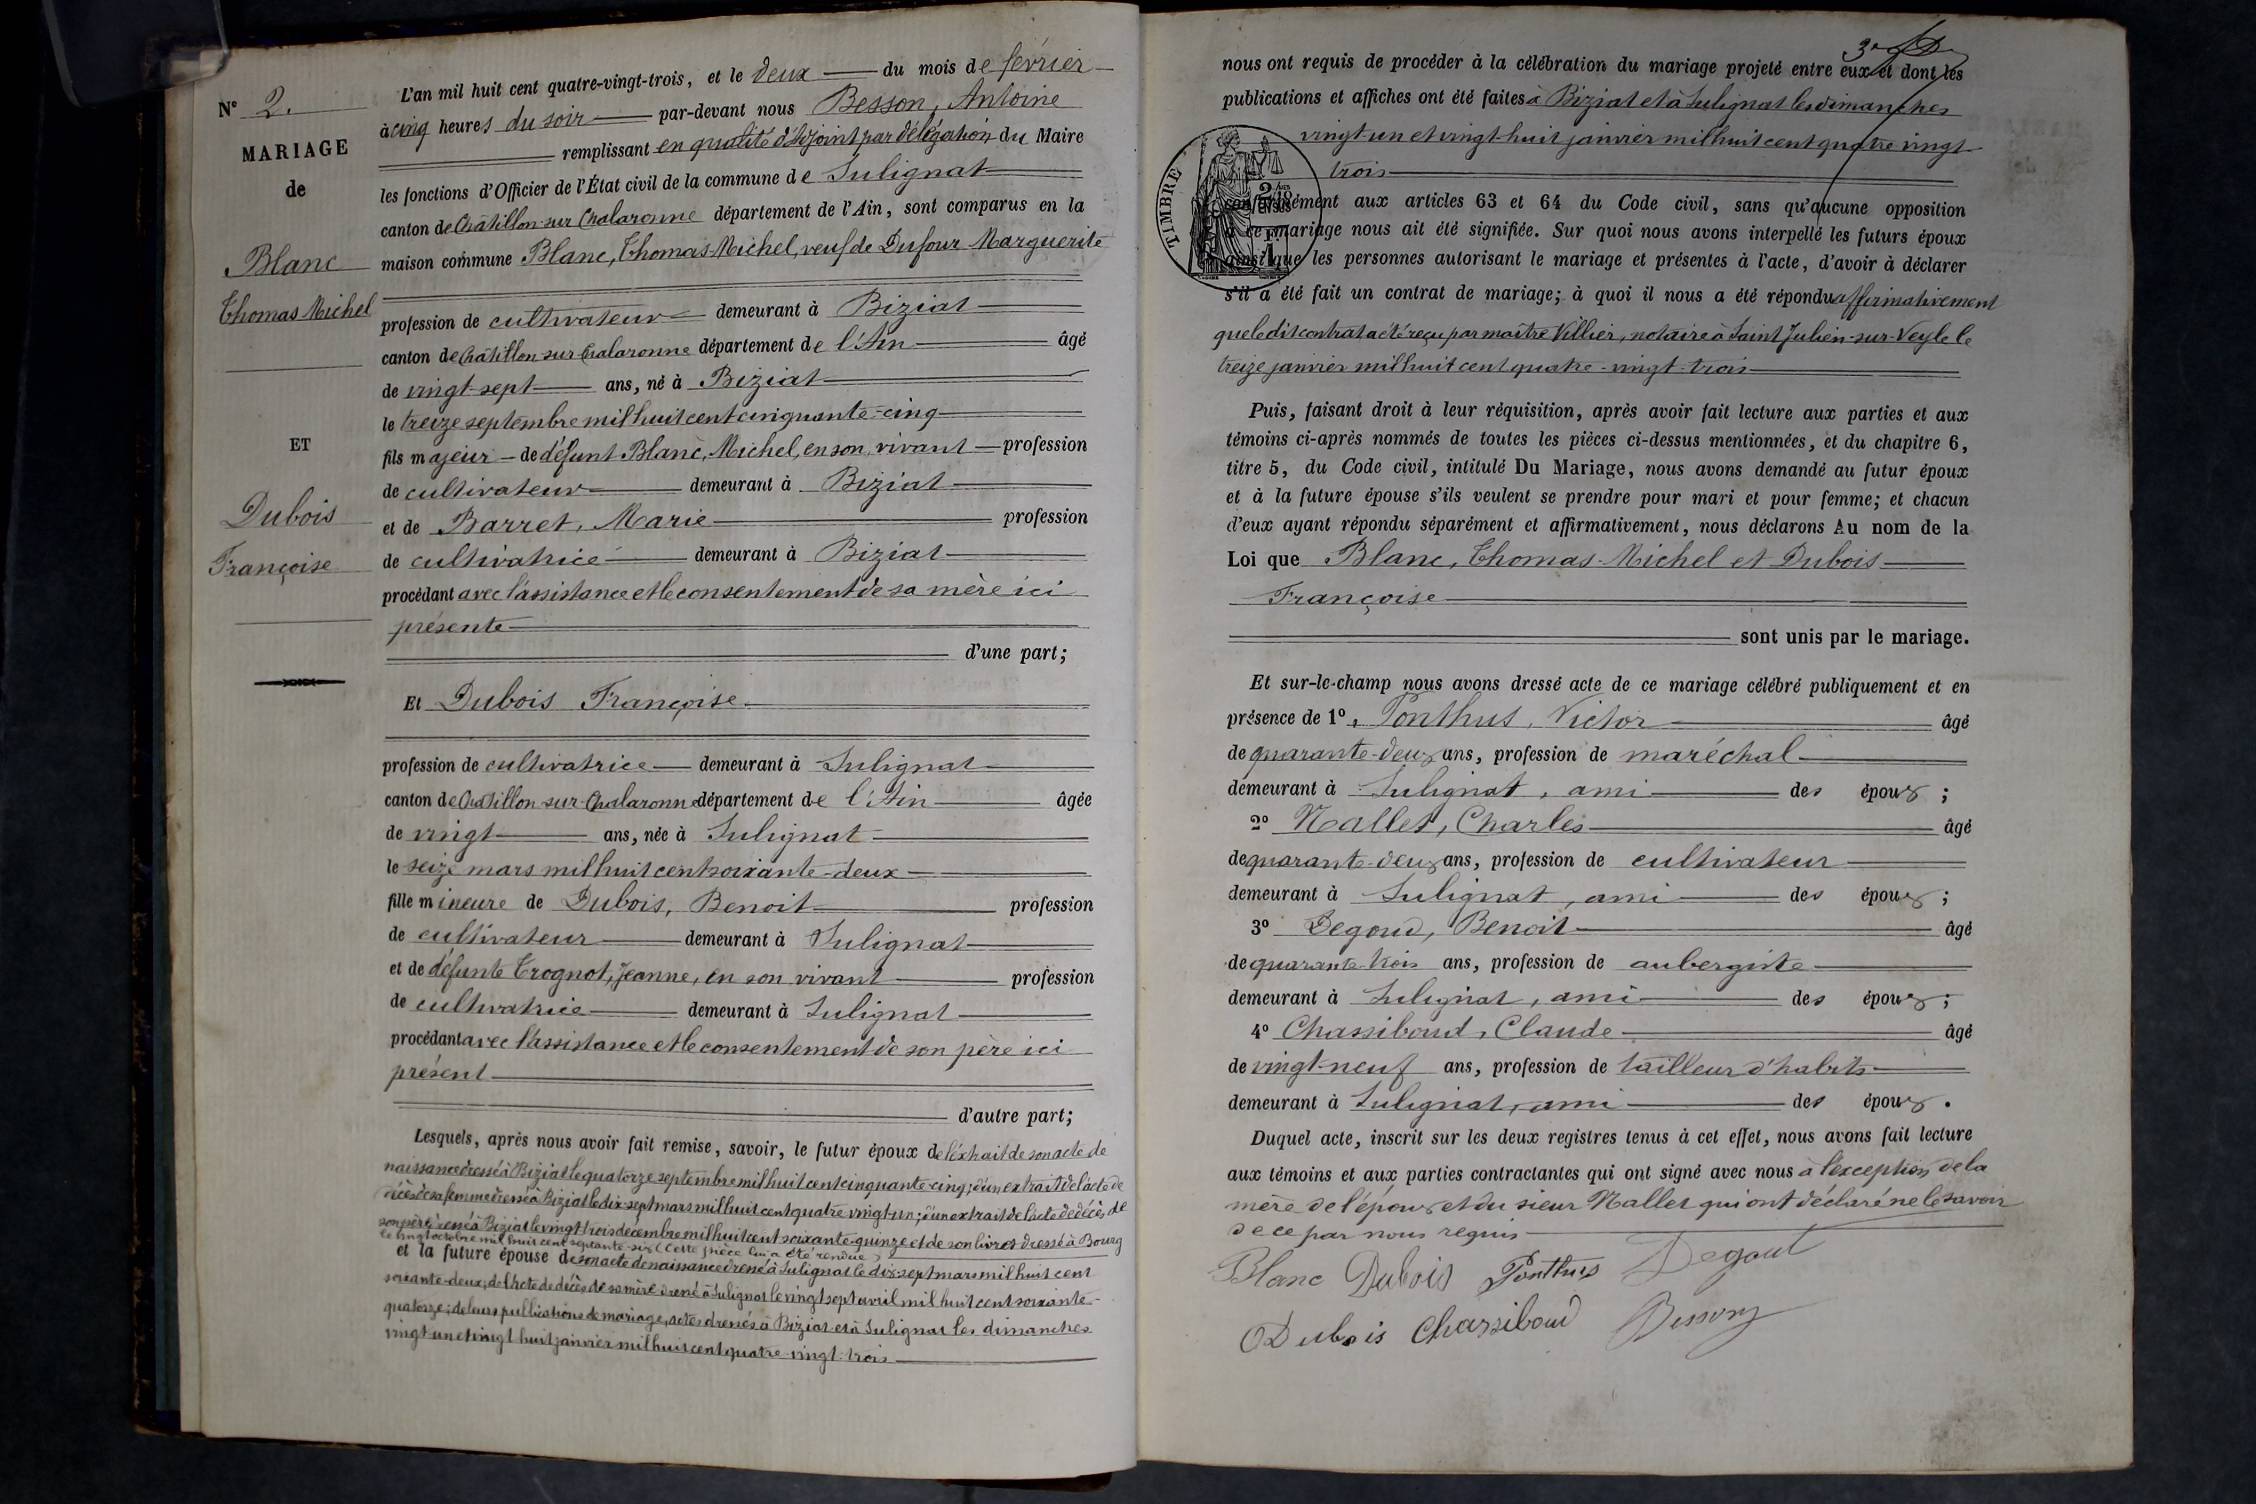 N° 2.
MARIAGE
de
Blanc
Thomas Michel
ET
Dubois
Françoise
L'an mil huit cent quatre-vingt-trois, et le deux du mois de février
à cinq heures du soir par-devant nous Besson, Antoine
remplissant en qualité d'adjoint par délégation du Maire
les fonctions d'Officier de l'État civil de la commune de Sulignat
canton de Châtillon-sur-Chalaronne département de l'Ain, sont comparus en la
maison commune Blanc, Thomas-Michel, veuf de Dufour Marguerite
profession de cultivateur demeurant à Biziat
canton de Châtillon-sur-Chalaronne département de l'Ain âgé
de vingt-sept ans, né à Biziat
le treize septembre mil huit cent cinquante-cinq
fils majeur de défunt Blanc, Michel, en son vivant profession
de cultivateur demeurant à Biziat
et de Barret, Marie profession
de cultivatrice demeurant à Biziat
procédant avec l'assistance et le consentement de sa mère ici
présente
d'une part;
Et Dubois Françoise
profession de cultivatrice demeurant à Sulignat
canton de Châtillon-sur-Chalaronne département de l'Ain âgée
de vingt ans, née à Sulignat
le seize mars mil huit cent soixante-deux
fille mineure de Dubois, Benoit profession
de cultivateur demeurant à Sulignat
et de défunte Trognot, Jeanne, en son vivant profession
de cultivatrice demeurant à Sulignat
procédant avec l'assistance et le consentement de son père ici
présent
d'autre part;
Lesquels, après nous avoir fait remise, savoir, le futur époux de l'extrait de son acte de
naissance dressé à Biziat le quatorze septembre mil huit cent cinquante-cinq; d'un extrait de l'acte de
décès de sa femme dressé à Biziat le dix-sept mars mil huit cent quatre-vingt-un; d'un extrait de l'acte de décès de
son père dressé à Biziat le vingt-trois décembre mil huit cent soixante-quinze et de son livret dressé à Bourg
le vingt octobre mil huit cent septante-six (cette pièce lui a été rendue)
et la future épouse de son acte de naissance dressé à Sulignat le dix-sept mars mil huit cent
soixante-deux; de l'acte de décès de sa mère dressé à Sulignat le vingt sept avril mil huit cent soixante-
quatorze; de leurs publications de mariage, actes dressés à Biziat et à Sulignat les dimanches
vingt-un et vingt-huit janvier mil huit cent quatre-vingt-trois
nous ont requis de procéder à la célébration du mariage projeté entre eux et dont les
publications et affiches ont été faites à Biziat et à Sulignat les dimanches
vingt-un et vingt-huit janvier mil huit cent quatre vingt
trois
TIMBRE
conformément aux articles 63 et 64 du Code civil, sans qu'aucune opposition
à ce mariage nous ait été signifiée. Sur quoi nous avons interpellé les futurs époux
ainsi que les personnes autorisant le mariage et présentes à l'acte, d'avoir à déclarer
s'il a été fait un contrat de mariage; à quoi il nous a été répondu affirmativement
que le dit contrat a été reçu par maître Villier, notaire à Saint Julien-sur-Veyle le
treize janvier mil huit cent quatre-vingt-trois
Puis, faisant droit à leur réquisition, après avoir fait lecture aux parties et aux
témoins ci-après nommés de toutes les pièces ci-dessus mentionnées, et du chapitre 6,
titre 5, du Code civil, intitulé Du Mariage, nous avons demandé au futur époux
et à la future épouse s'ils veulent se prendre pour mari et pour femme; et chacun
d'eux ayant répondu séparément et affirmativement, nous déclarons Au nom de la
Loi que Blanc, Thomas-Michel et Dubois
Françoise
sont unis par le mariage.
Et sur-le-champ nous avons dressé acte de ce mariage célébré publiquement et en
présence de 1°, Ponthus, Victor âgé
de quarante-deux ans, profession de maréchal
demeurant à Sulignat, ami des époux;
2° Nallet, Charles âgé
de quarante-deux ans, profession de cultivateur
demeurant à Sulignat, ami des époux;
3° Degoud, Benoit âgé
de quarante-trois ans, profession de aubergiste
demeurant à Sulignat, ami des époux;
4° Chassiboud, Claude âgé
de vingt-neuf ans, profession de tailleur d'habits
demeurant à Sulignat, ami des époux.
Duquel acte, inscrit sur les deux registres tenus à cet effet, nous avons fait lecture
aux témoins et aux parties contractantes qui ont signé avec nous à l'exception de la
mère de l'époux et du sieur Nallet qui ont déclaré ne le savoir
de ce par nous requis
Blanc Dubois Ponthus Degout
Dubois Chassiboud Besson